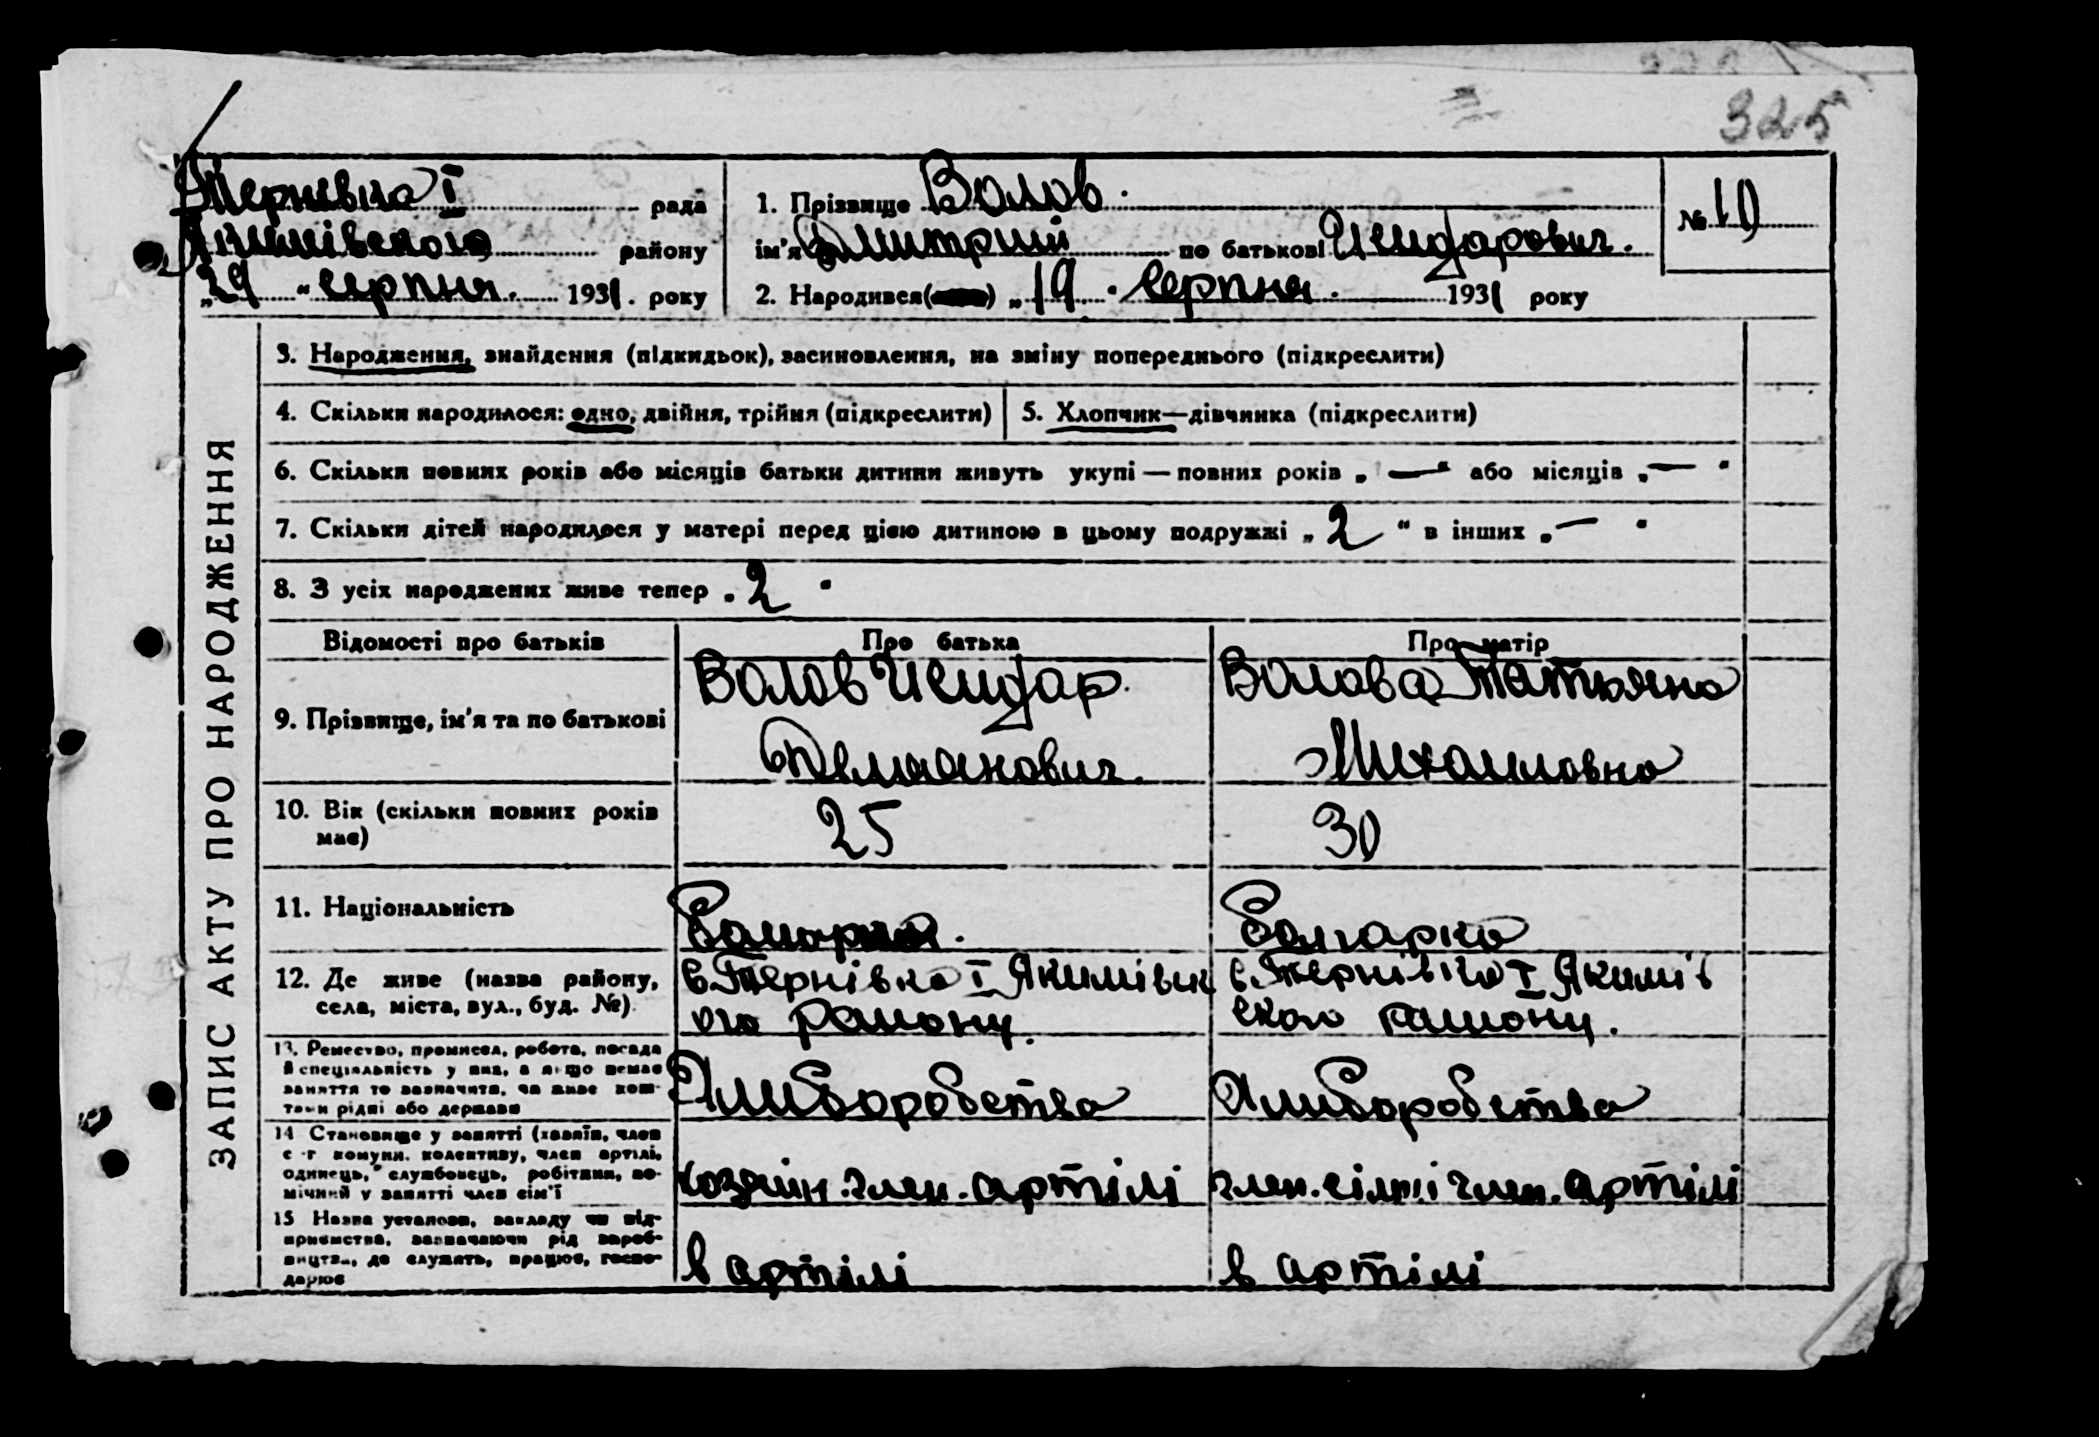 325
Тернівка I рада
Якимівського району
„29“ серпня. 1931. року
1. Прізвище Волов.
ім'я Дмитрий по батькові Исидорович.
2. Народився() „19. Серпня. 1931 року
№ 10
ЗАПИС АКТУ ПРО НАРОДЖЕННЯ
3. Народження, знайдення (підкидьок), засиновлення, на зміну попереднього (підкреслити)
4. Скільки народилося: одно, двійня, трійня (підкреслити)
5. Хлопчик—дівчинка (підкреслити)
6. Скільки повних років або місяців батьки дитини живуть укупі — повних років „—“ або місяців „—“
7. Скільки дітей народилося у матері перед цією дитиною в цьому подружжі „2“ в інших „—“
8. З усіх народжених живе тепер „2“
Відомості про батьків
Про батька
Про матір
9. Прізвище, ім'я та по батькові
Волов Исидар.
Демянович.
Волова Татьяна
Михаиловна
10. Вік (скільки повних років
має)
25
30
11. Національність
Болгарка
12. Де живе (назва району,
села, міста, вул., буд. №)
с. Тернівка I Якимівск
ого району.
с. Тернівка I Якимів
ского району.
13. Ремество, промисел, робота, посада
й спеціяльність у них, а якщо немає
заняття то зазначити, чи живе кош-
тами рідні або держави
Хліборобство
Хліборобство
14 Становище у занятті (хазяїн, член
с.-г комуни. колективу, член артілі,
одинець, службовець, робітник, по-
мічний у занятті член сім'ї
хозяин. член. артілі
член. сімї член. артілі
15 Назва установи, закладу чи під-
приємства, зазначаючи рід вироб-
ництва, де служить, працює, госпо-
дарює
в артілі
в артілі